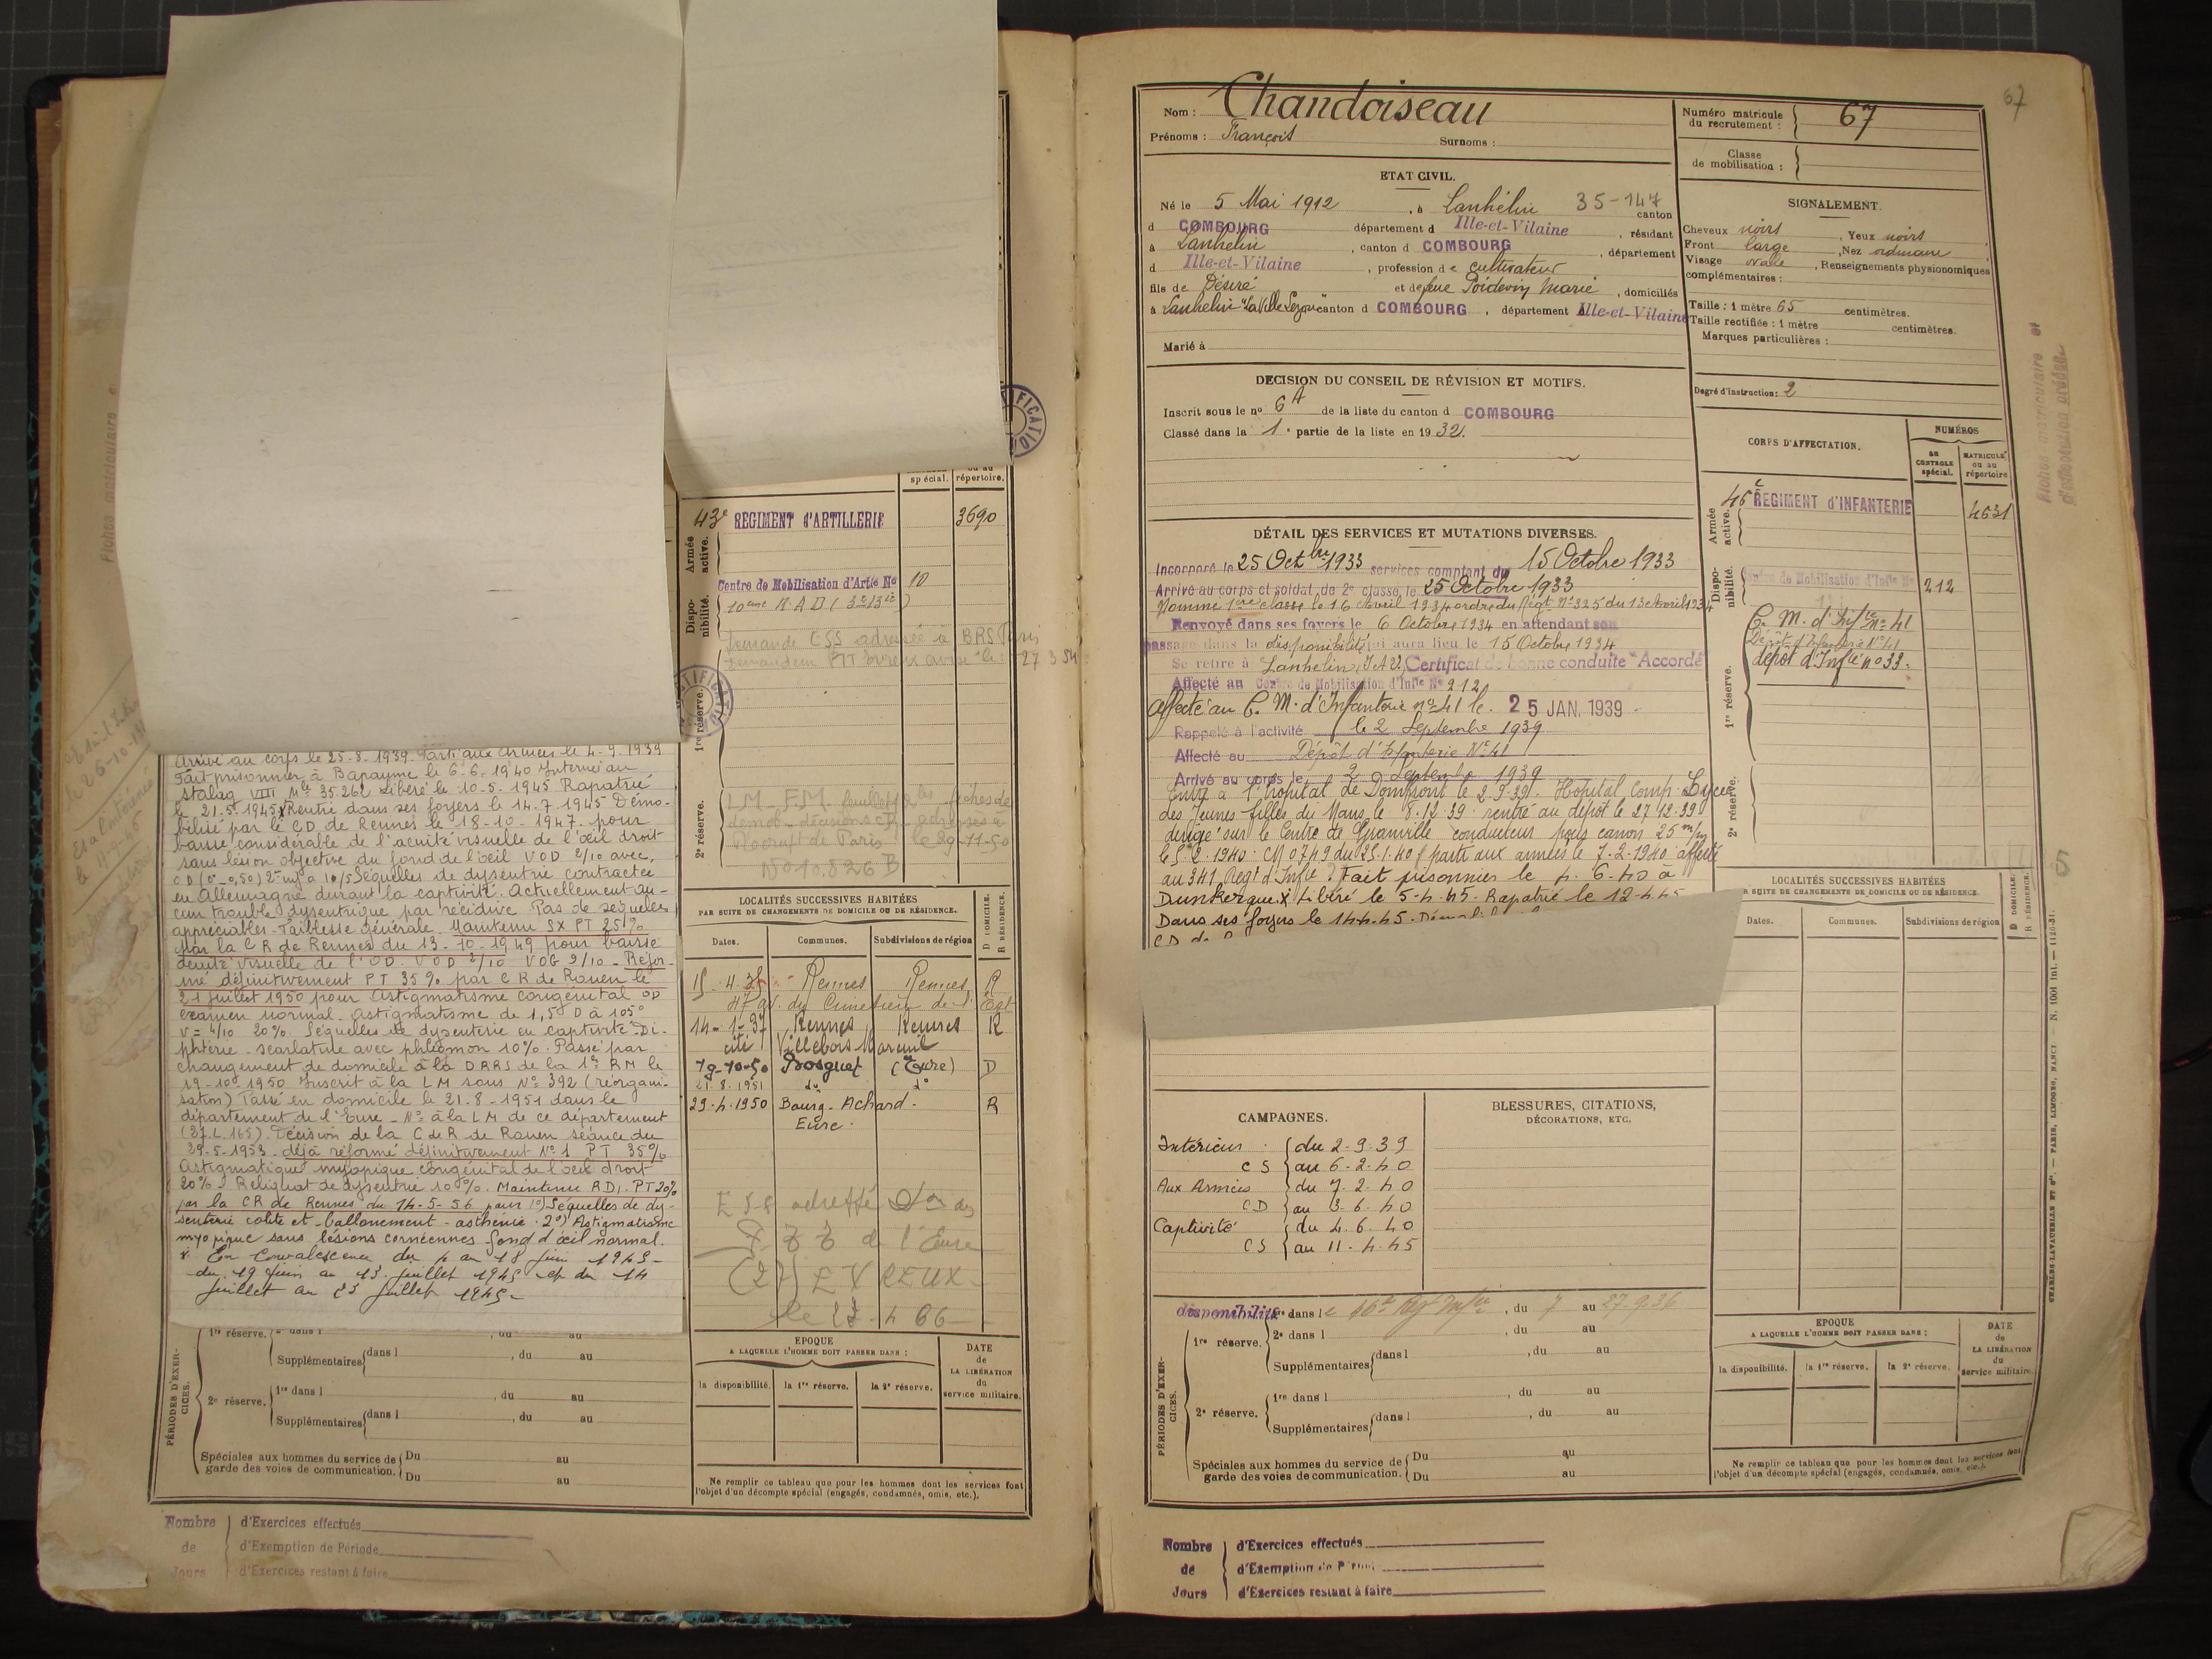 spécial.
ou au
répertoire.
43e REGIMENT d'ARTILLERIE
3690
Armée
active.
Centre de Mobilisation d'Artie No 10
Dispo-
nibilité.
Demande ESS adressée à BRS Paris
27 3 54
1re réserve.
2e réserve.
LM - F.M.
No 10.826 B
Arrivé au corps le 25-8-1939 Parti aux Armées le 4-9-1939
Fait prisonnier à Bapaume le 6-6-1940 Interné au
stalag VIII Mle 35.262 Libéré le 10-5-1945 Rapatrié
le 21.5.1945 x Rentré dans ses foyers le 14.7.1945 Démo-
bilisé par le CD de Rennes le 18-10-1947. pour
baisse considérable de l'acuité visuelle de l'œil droit
sans lésion objective du fond de l'œil VOD 2/10 avec,
Séquelles de dysentrie contractée
en Allemagne durant la captivité. Actuellement au-
cun trouble dysentrique par récidive. Pas de séquelles
appréciables - Faiblesse générale. Maintenu SX PT 25%
par la CR de Rennes du 13-10-1949 pour baisse
acuité visuelle de l'O.D. VOD 2/10 VOG 9/10 - Réfor-
mé définitivement PT 35% par C R de Rouen le
21 juillet 1950 pour astigmatisme congénital OD
examen normal - Astigmatisme de 1,5 D à 105°
V = 4/10 20%. Séquelles de dysenterie en captivité - Di-
phtérie - scarlatine avec phlegmon 10%. Passé par
changement de domicile à la DRRS de la 1re RM le
19-10-1950 Inscrit à la LM sous No 392 (réorgani-
sation) Passé en domicile le 21-8-1951 dans le
département de l'Eure - No à la LM de ce département
(27.L.165). Décision de la C de R de Rouen séance du
29-5-1953 - déjà réformé définitivement No 1 PT 35%
Astigmatique myopique congénital de l'œil droit
20% - Reliquat de dysentrie 10%. Maintenu RD1. PT 20%
par la CR de Rennes du 14-5-56 pour 1°) Séquelles de dy-
senterie colite et ballonement - asthénie. 2°) Astigmatisme
myopique sans lésions cornéennes fond d'œil normal.
x En Convalescence du 4 au 18 juin 1945 -
du 19 juin au 13 juillet 1945 et du 14
juillet au 23 juillet 1945 -
LOCALITÉS SUCCESSIVES HABITÉES
PAR SUITE DE CHANGEMENTS DE DOMICILE OU DE RÉSIDENCE.
D DOMICILE.
R RÉSIDENCE.
Dates.
Communes.
Subdivisions de région
15-4-35 Rennes Rennes R
14-1-37 Rennes Rennes R
cité Villebois Mareuil
19-10-50 Bosguet (Eure) D
21.8.1951 do do
29.4.1950 Bourg-Achard. R
Eure.
de l'Eure
(27) EVREUX
1re réserve.
Supplémentaires dans l , du au
PÉRIODES D'EXER-
CICES.
2e réserve. 1re dans l , du au
Supplémentaires dans l , du au
Spéciales aux hommes du service de Du au
garde des voies de communication. Du au
EPOQUE
A LAQUELLE L'HOMME DOIT PASSER DANS :
la disponibilité.
la 1re réserve.
la 2e réserve.
DATE
de
LA LIBÉRATION
du
service militaire.
Ne remplir ce tableau que pour les hommes dont les services font
l'objet d'un décompte spécial (engagés, condamnés, omis, etc.).
Nombre d'Exercices effectués
de d'Exemption de Période
Jours d'Exercices restant à faire
67
Nom : Chandoiseau
Prénoms : François Surnoms :
Numéro matricule
du recrutement : 67
Classe
de mobilisation :
ETAT CIVIL.
Né le 5 Mai 1912, à Lanhélin 35-147 canton
d COMBOURG département d Ille-et-Vilaine, résidant
à Lanhélin, canton d COMBOURG, département
d Ille-et-Vilaine, profession de cultivateur
fils de Désiré et de feue Poidevin Marie, domiciliés
à Lanhélin canton d COMBOURG, département Ille-et-Vilaine
Marié à
SIGNALEMENT.
Cheveux noirs, Yeux noirs
Front large, Nez ordinaire
Visage ovale, Renseignements physionomiques
complémentaires :
Taille : 1 mètre 65 centimètres.
Taille rectifiée : 1 mètre centimètres.
Marques particulières :
Degré d'instruction : 2
DECISION DU CONSEIL DE RÉVISION ET MOTIFS.
Inscrit sous le no 6A de la liste du canton d COMBOURG
Classé dans la 1e partie de la liste en 1932.
CORPS D'AFFECTATION.
NUMÉROS
au
CONTROLE
spécial.
MATRICULE
ou au
répertoire
Armée
active.
46e REGIMENT d'INFANTERIE
4631
Dispo-
nibilité.
Centre de Mobilisation d'Infie No 212
1re réserve.
C. M. d'Infie No 41
Dépôt d'Infanterie No 41
dépôt d'Infie no 33.
2e réserve.
DÉTAIL DES SERVICES ET MUTATIONS DIVERSES.
Incorporé le 25 Octbre 1933 services comptant du 15 Octobre 1933
Arrivé au corps et soldat de 2e classe, le 25 Octobre 1933
Nommé 1ère classe le 16 Avril 1934 ordre du Régt No 325 du 13 Avril 1934
Renvoyé dans ses foyers le 6 Octobre 1934 en attendant son
passage dans la disponibilité qui aura lieu le 15 Octobre 1934
Se retire à Lanhelin, I et V, Certificat de bonne conduite "Accordé"
Affecté au Centre de Mobilisation d'Infie No 212
Affecté au C. M. d'Infanterie no 41 le 25 JAN. 1939
Rappelé à l'activité le 2 Septembre 1939
Affecté au Dépôt d'Infanterie No 41
Arrivé au corps le 2 Septembre 1939
Entré à l'hôpital de Domfront le 2.9.39. Hôpital Comp. Lycée
des Jeunes filles du Mans le 8.12.39 - rentré au dépôt le 27.12.39
dirigé sur le Centre de Granville conducteur pour canon 25 m/m
le 5.2.1940. CM 0749 du 25.1.40 parti aux armées le 7.2.1940 affecté
au 341 Regt d'Infie. Fait prisonnier le 4.6.40 à
Dunkerque. X Libéré le 5-4-45. Rapatrié le 12.4.45
Dans ses foyers le 14.4.45.
LOCALITÉS SUCCESSIVES HABITÉES
PAR SUITE DE CHANGEMENTS DE DOMICILE OU DE RÉSIDENCE.
D DOMICILE.
R RÉSIDENCE.
Dates.
Communes.
Subdivisions de région
CAMPAGNES.
Intérieur CS du 2-9-39
au 6-2-40
Aux Armées CD du 7.2.40
au 3.6.40
Captivité CS du 4.6.40
au 11.4.45
BLESSURES, CITATIONS,
DÉCORATIONS, ETC.
disponibilité dans le , du 7 au 27.9.36
1re réserve. 2e dans l , du au
Supplémentaires dans l , du au
PÉRIODES D'EXER-
CICES.
2e réserve. 1re dans l , du au
Supplémentaires dans l , du au
Spéciales aux hommes du service de Du au
garde des voies de communication. Du au
EPOQUE
A LAQUELLE L'HOMME DOIT PASSER DANS :
la disponibilité.
la 1re réserve.
la 2e réserve.
DATE
de
LA LIBÉRATION
du
service militaire.
Ne remplir ce tableau que pour les hommes dont les services font
l'objet d'un décompte spécial (engagés, condamnés, omis, etc.).
Nombre d'Exercices effectués
de d'Exemption de
Jours d'Exercices restant à faire
CHARLES-LAVAUZELLE ET Cie — PARIS, LIMOGES, NANCY